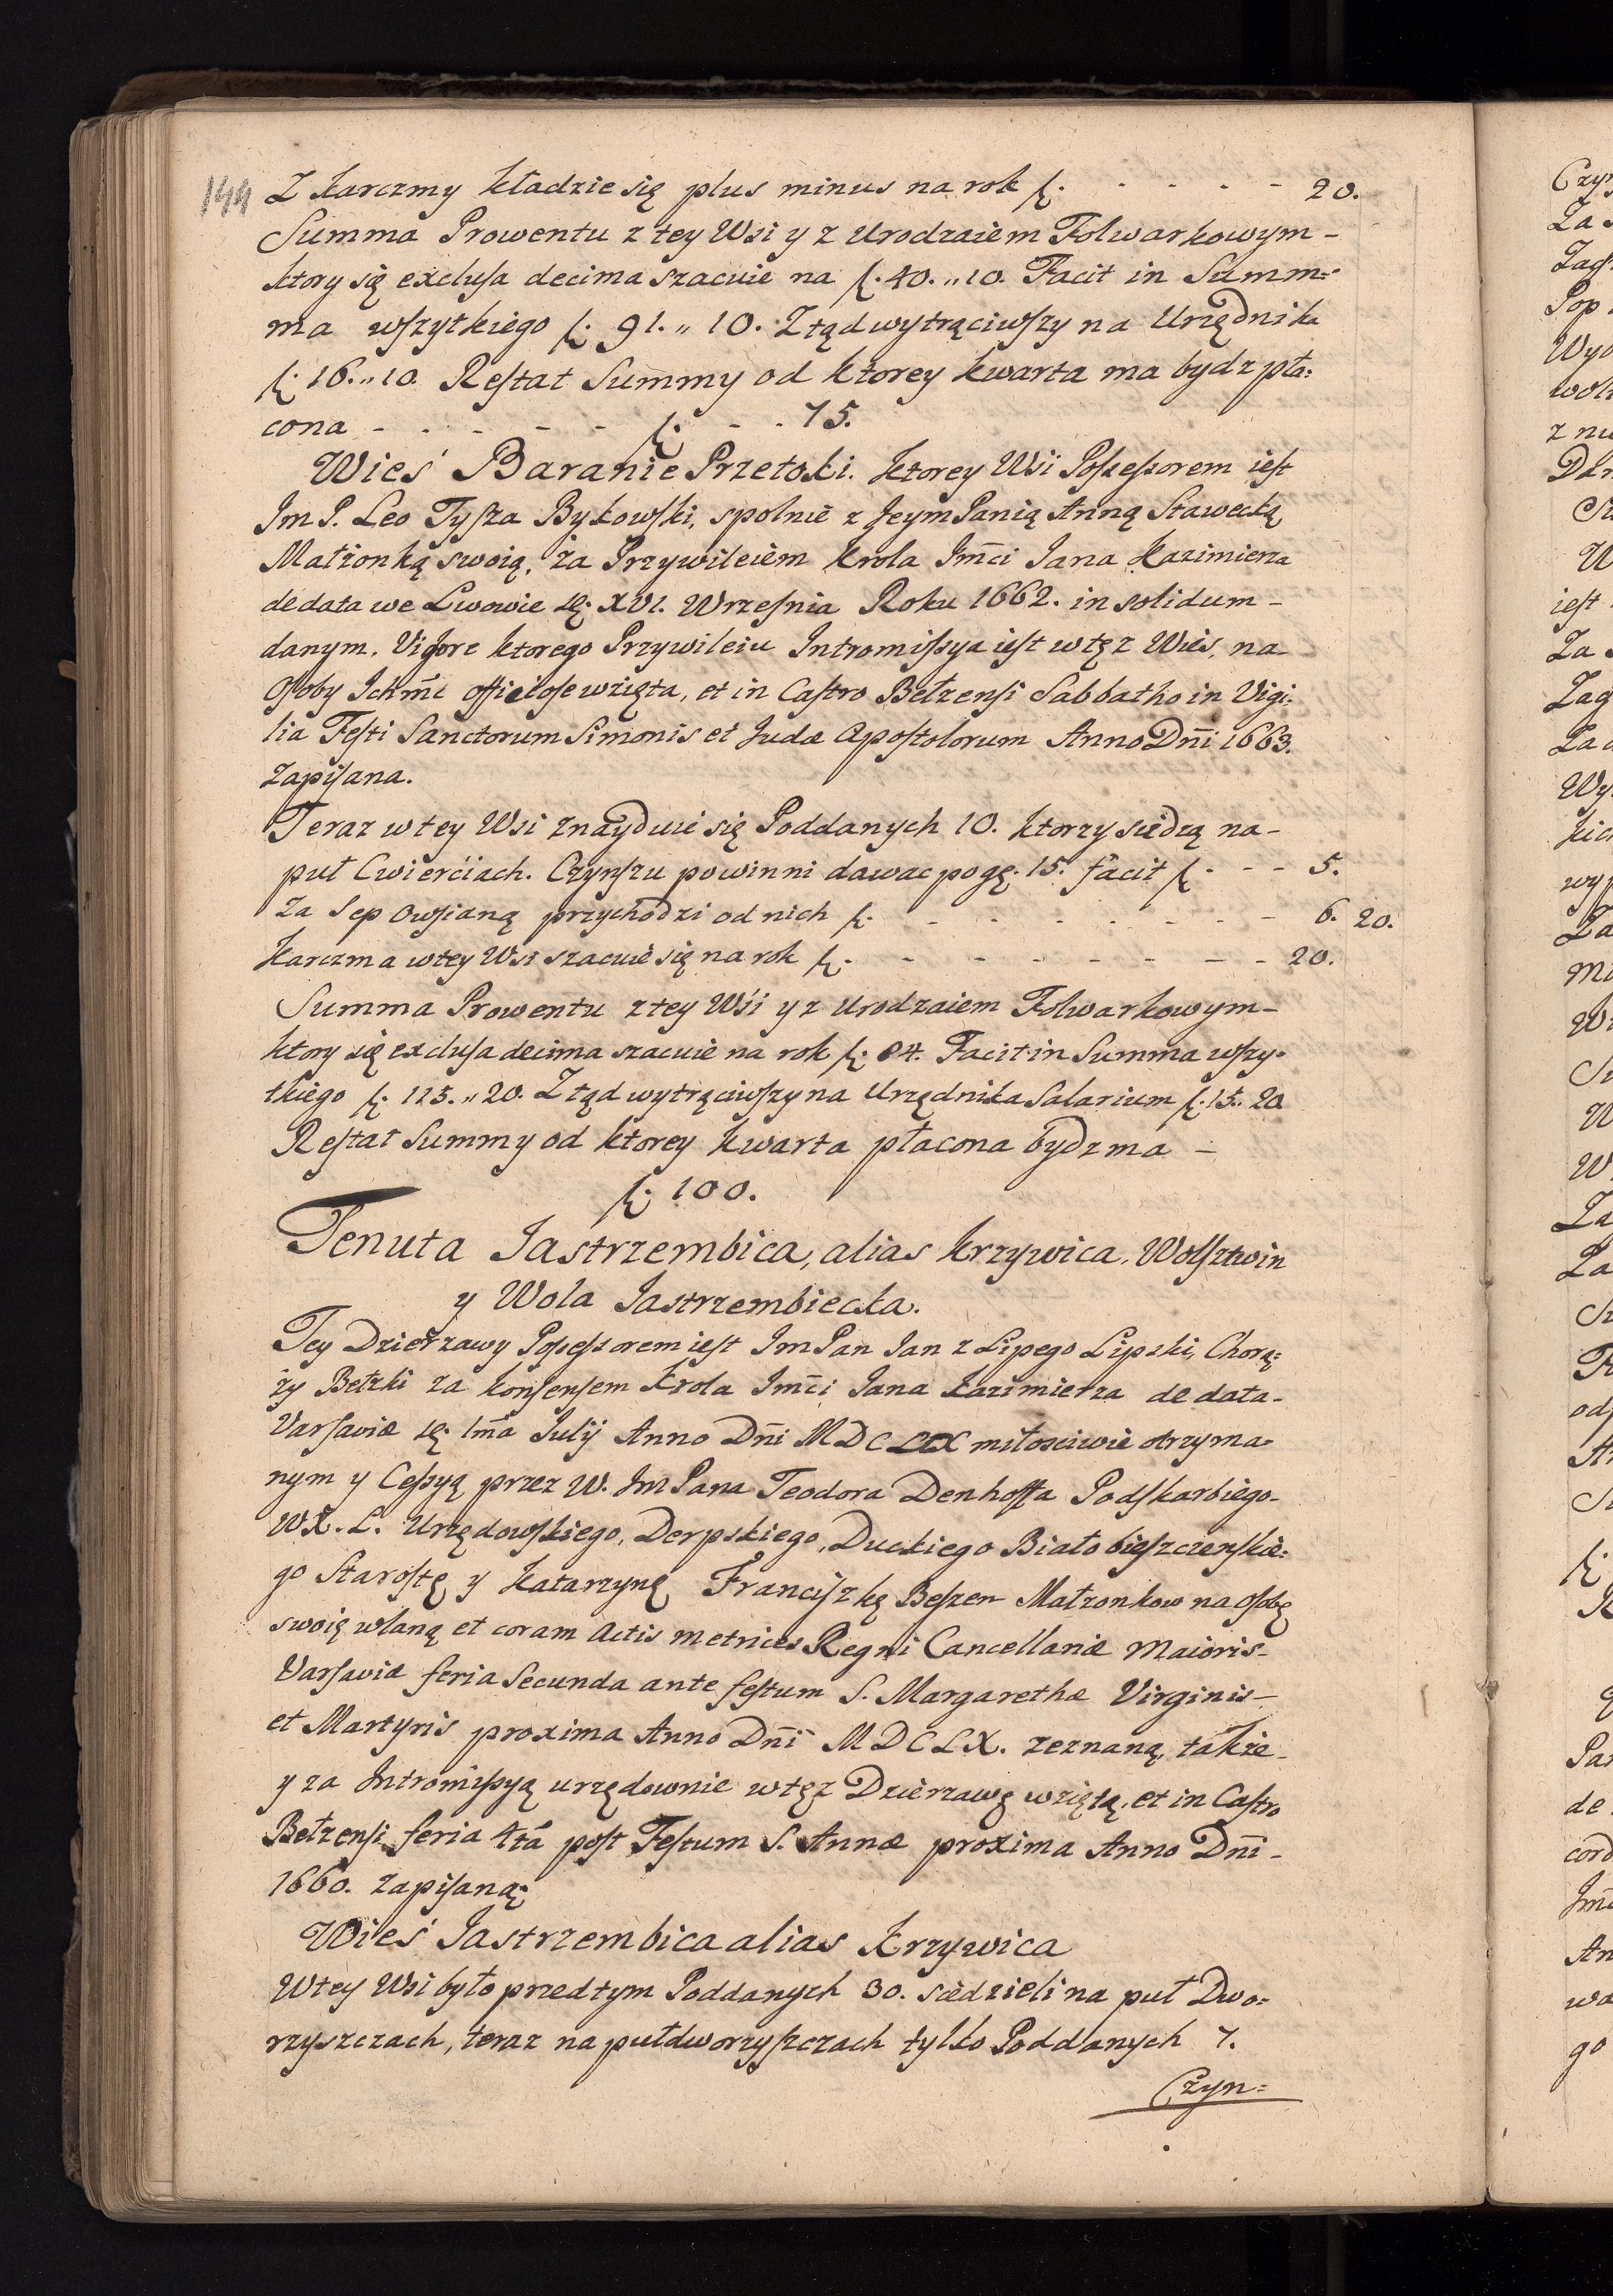 144
Z Karczmy kładzie się plus minus na rok f. - - - - - 20.
Summa Prowentu z tey Wsi y z Urodzaiem Folwarkowym -
ktory się exclusa decima szacuie na f. 40. „ 10. Facit in Summ=
ma wszytkiego f. 91. „ 10. Ztąd wytrąciwszy na Urzędnika
f. 16. „ 10. Restat Summy od ktorey kwarta ma bydz pła=
cona - - - - - f. - - 75.
Wieś Baranie Przetoki. Ktorey Wsi Possessorem iest
Im P. Leo Tysza Bykowski, spolnie z Jeym Panią Anną Stawecką
Małżonką swoią, za Przywileiem Krola Jmci Jana Kazimierza
de data we Lwowie XVI. Wrzesnia Roku 1662. in solidum -
danym. Vigore ktorego Przywileiu Intromissya iest w tęż Wies, na
Osoby Ichmc officiose wzięta, et in Castro Bełzensi Sabbatho in Vigi=
lia Festi Sanctorum Simonis et Judæ Apostolorum Anno Dni 1663.
Zapisana.
Teraz w tey Wsi znayduie się Poddanych 10. ktorzy siedzą na -
puł Cwierciach. Czynszu powinni dawac po gę. 15. facit f. - - 5.
Za Sep Owsianą przychodzi od nich f. - - - - - - - 6. 20.
Karczma w tey Wsi szacuie się na rok f. - - - - - - - 20.
Summa Prowentu z tey Wśi y z Urodzaiem Folwarkowym -
ktory się exclusa decima szacuie na rok f. 84. Facit in Summa wszy=
tkiego f. 115. „ 20. Ztąd wytrąciwszy na Urzędnika Salarium f. 15. 20
Restat Summy od ktorey kwarta płacona bydz ma -
f. 100.
Tenuta Jastrzembica, alias Krzywica, Wolsztwin
y Wola Jastrzembiecka.
Tey Dzierzawy Possessorem iest Im Pan Jan z Lipego Lipski, Chorą=
ży Bełzki za konsensem Krola Jmci Jana Kazimierza de data -
Varsaviæ 1ma Julij Anno Dni MDCLX miłosciwie otrzyma=
nym y Cessyą przez W. Im Pana Teodora Denhoffa Podskarbiego -
W.X.L. Urzędowskiego, Derpskiego, Duckiego Białobieszczenskie=
go Starostę y Katarzynę Franciszkę Bessen Małzonkow na osobę
swoię wlaną et coram Actis metrices Regni Cancellariæ Maioris -
Varsaviæ feria Secunda ante festum S. Margarethæ Virginis -
et Martyris proxima Anno Dni MDCLX. zeznaną, także -
y za Intromissyą urzędownie w tęż Dzierzawę wziętą, et in Castro
Bełzensi feria 4ta post Festum S. Annæ proxima Anno Dni -
1660. zapisaną.
Wieś Jastrzembica alias Krzywica
W tey Wsi było przedtym Poddanych 30. siedzieli na puł Dwo=
rzyszczach, teraz na pułdworzyszczach tylko Poddanych 7.
Czyn=